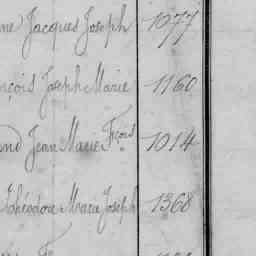 me Jacques Joseph 1077
nçois Joseph Marie 1160
and Jean Marie Fçois 1014
Théodore Maria Joseph 1368